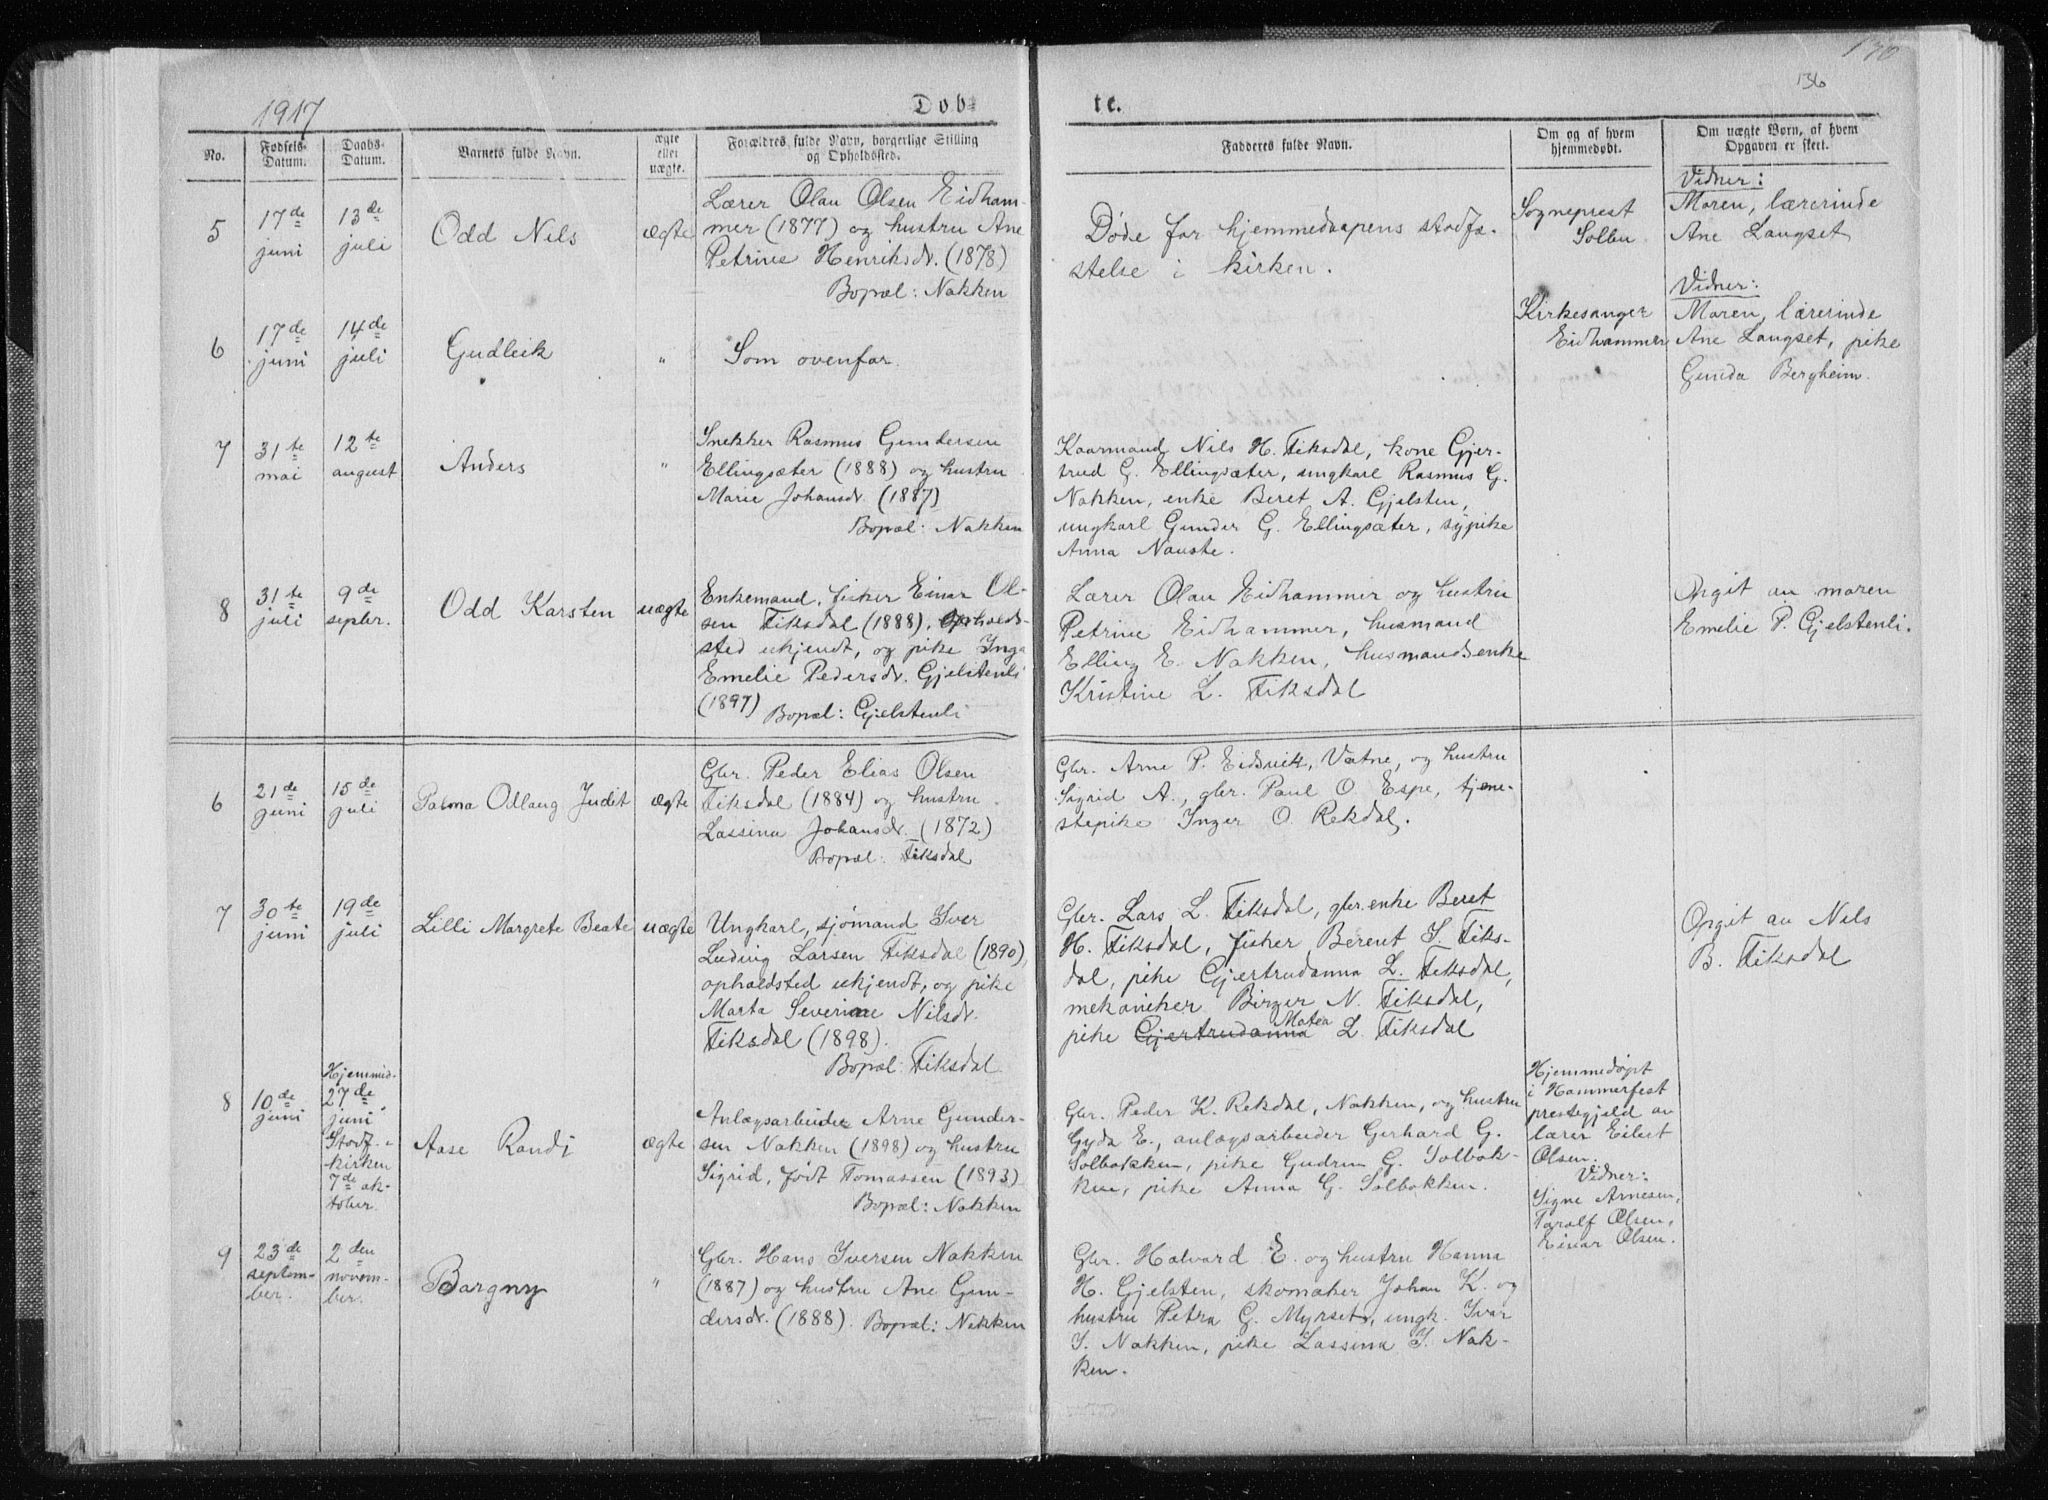 1917
Døb-
te.
136
No.
Fødsels-
Datum.
Daabs-
Datum.
Barnets fulde Navn.
ægte
eller
uægte.
Forældres fulde Navn, borgerlige Stilling
og Opholdssted.
Fadderes fulde Navn.
Om og af hvem
hjemmedøbt.
Om uægte Børn, af hvem
Opgaven er skeet.
5
17de
juni
13de
juli
Odd Nils
ægte
Lærer Olau Olsen Eidham-
mer (1877) og hustru Ane
Petrine Henriksdr. (1878)
Bopæl: Nakken
Døde før hjemmedaapens stadfæ-
stelse i kirken.
Sogneprest
Solbu
Vidner:
Moren, lærerinde
Ane Langset
6
17de
juni
14de
juli
Gudleik
"
Som ovenfor.
Kirkesanger
Eidhammer
Vidner:
Moren, lærerinde
Ane Langset, pike
Gunda Bergheim.
7
31te
mai
12te
august
Anders
"
Snekker Rasmus Gundersen
Ellingsæter (1888) og hustru
Marie Johansdr. (1887)
Bopæl: Nakken
Kaarmand Nils H. Tiksdal, kone Gjer-
trud G. Ellingsæter, ungkarl Rasmus G.
Nakken, enke Beret A. Gjelsten,
ungkarl Gunder G. Ellingsæter, sypike
Anna Nauste.
8
31te
juli
9de
septbr.
Odd Karsten
uægte
Enkemand, fisker Einar Ol-
sen Tiksdal (1888), opholds-
sted ukjendt, og pike Inga
Emelie Pedersdr. Gjelstenli
(1897) Bopæl: Gjelstenli
Lærer Olau Eidhammer og hustru
Petrine Eidhammer, husmand
Elling E. Nakken, husmandsenke
Kristine L. Tiksdal
Opgit av moren
Emelie P. Gjelstenli.
6
21de
juni
15de
juli
Palma Odlaug Judit
ægte
Gbr. Peder Elias Olsen
Tiksdal (1884) og hustru
Lassina Johansdr. (1872)
Bopæl: Tiksdal
Gbr. Arne P. Eidsvik, Vatne, og hustru
Sigrid A., gbr. Paul O. Espe, tjene-
stepike Inger O. Rekdal.
7
30te
juni
19de
juli
Lilli Margrete Beate
uægte
Ungkarl, sjømand Iver
Ludvig Larsen Tiksdal (1890),
opholdsted ukjendt, og pike
Marta Severine Nilsdr.
Tiksdal (1898).
Bopæl: Tiksdal
Gbr. Lars L. Tiksdal, gbr.enke Beret
H. Tiksdal, fisker Berent S. Tiks-
dal, pike Gjertrudanna L. Tiksdal,
mekaniker Birger N. Tiksdal,
Matea
pike Gjertrudanna L. Tiksdal
Opgit av Nils
B. Tiksdal
8
10de
juni
Hjemmed.
27de
juni,
Stadf. i
kirken
7de ok-
tober.
Aase Randi
ægte
Anlægsarbeider Arne Gunder-
sen Nakken (1898) og hustru
Sigrid, født Tomassen (1893)
Bopæl: Nakken
Gbr. Peder K. Rekdal, Nakken, og hustru
Gyda E., anlægsarbeider Gerhard G.
Solbakken, pike Gudrun G. Solbak-
ken, pike Anna G. Solbakken.
Hjemmedøpt
i Hammerfest
prestegjeld av
lærer Eilert
Olsen.
Vidner:
Signe Arnesen,
Toralf Olsen,
Einar Olsen.
9
23de
septem-
ber.
2den
novem-
ber.
Borgny
"
Gbr. Hans Iversen Nakken
(1887) og hustru Ane Gun-
dersdr. (1888). Bopæl: Nakken
Gbr. Halvard E. og hustru Hanna
H. Gjelsten, skomaker Johan K. og
hustru Petra G. Myrset, ungk. Ivar
I. Nakken, pike Lassina I. Nak-
ken.